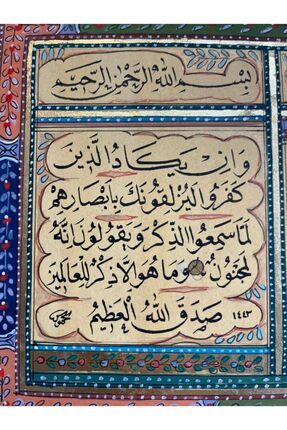 بِسْمِ اللهِ الرَّحْمٰنِ الرَّحِيْمِ
وَاِنْ يَكَادُ الَّذِينَ
كَفَرُوا لَيُزْلِقُونَكَ بِاَبْصَارِهِمْ
لَمَّا سَمِعُوا الذِّكْرَ وَيَقُولُونَ اِنَّهُ
لَمَجْنُونٌ وَمَا هُوَ اِلَّا ذِكْرٌ لِلْعَالَمِينَ
صَدَقَ اللهُ الْعَظِيمُ ١٤٤٣